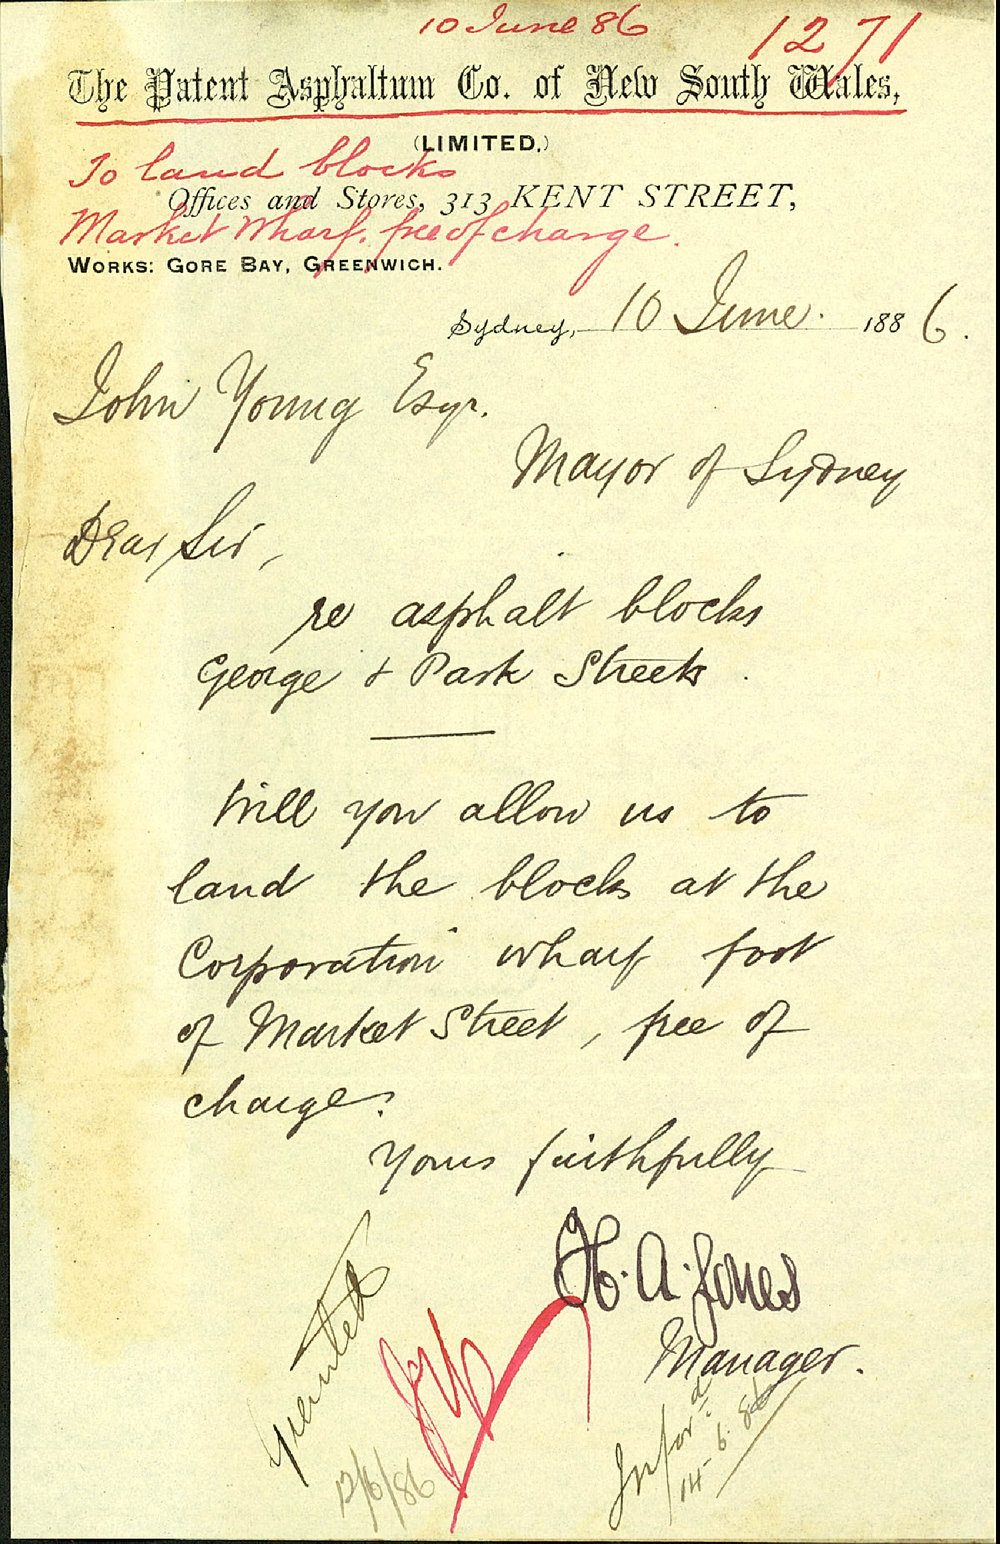 10 June 86
1271
The Patent Asphaltum Co. of New South Wales,
(LIMITED.)
To land blocks
Offices and Stores, 313 KENT STREET,
Market Wharf. free of charge.
WORKS: GORE BAY, GREENWICH.
Sydney, 10 June. 1886.
John Young Esqr.
Mayor of Sydney
Dear Sir,
re asphalt blocks
George & Park Streets
Will you allow us to
land the blocks at the
Corporation wharf foot
of Market Street, free of
charge?
Yours faithfully
H. A. Jones
Manager.
Granted
JY
12/6/86
Inford
14-6-86